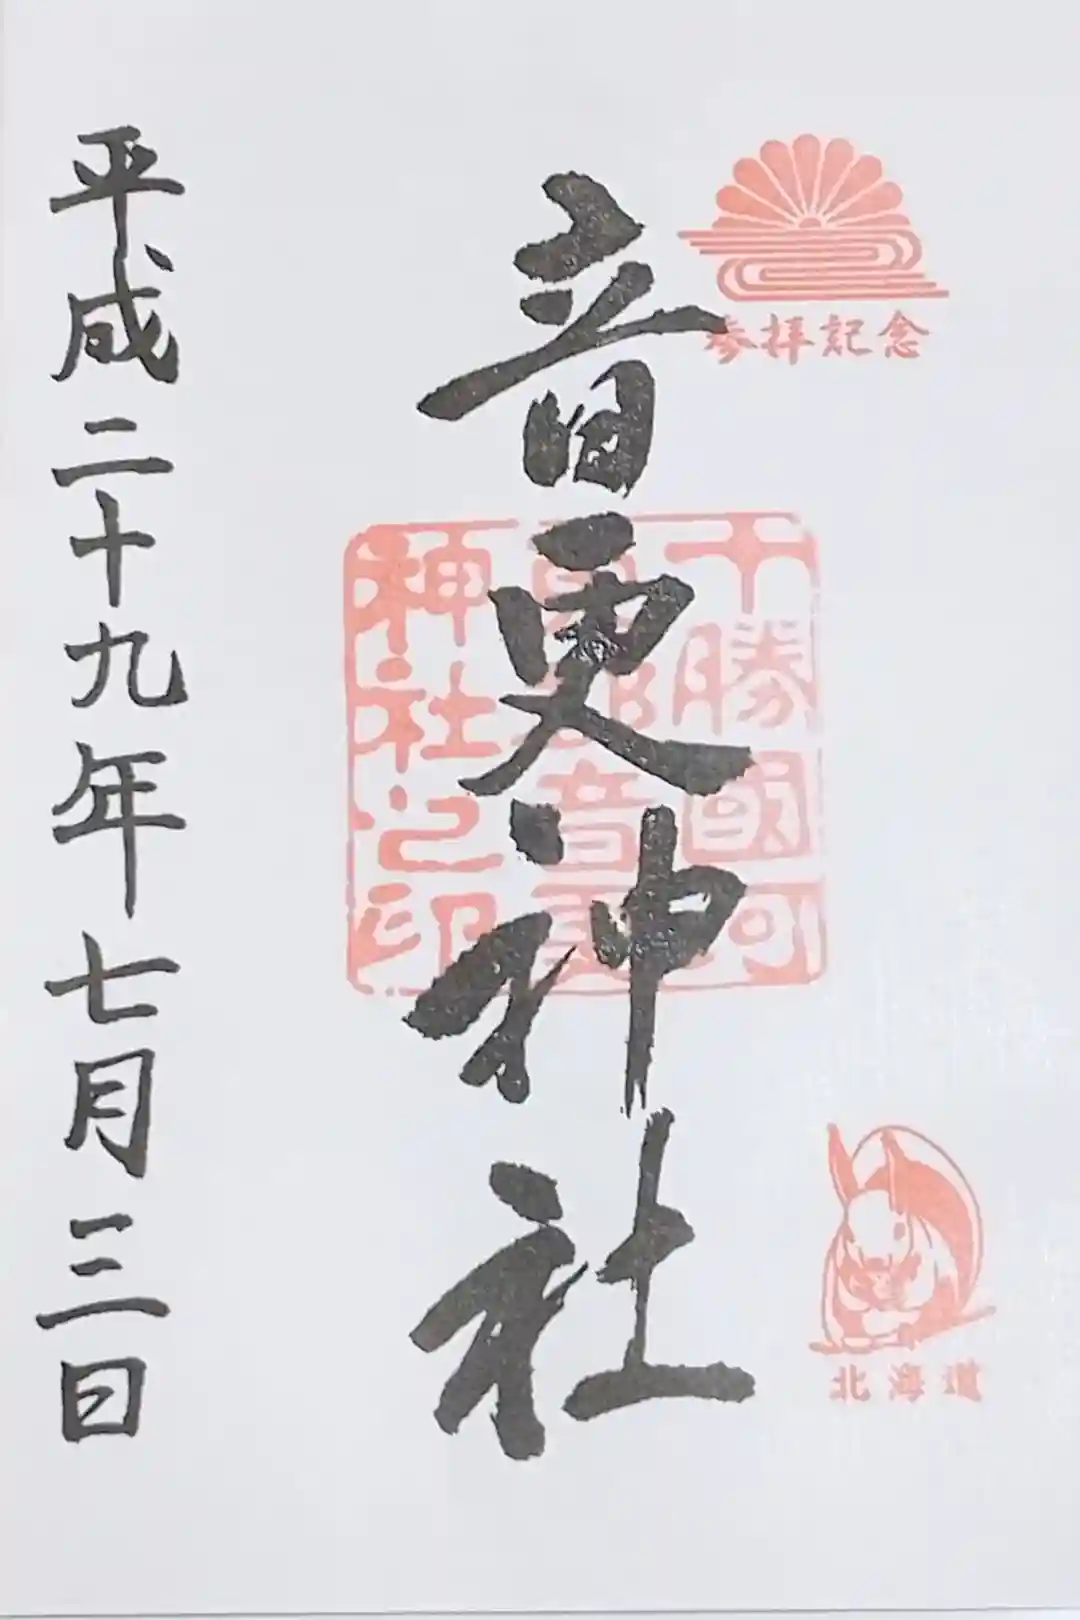 参拝記念
音更神社
十勝國河
東郡音更
神社之印
北海道
平成二十九年七月三日